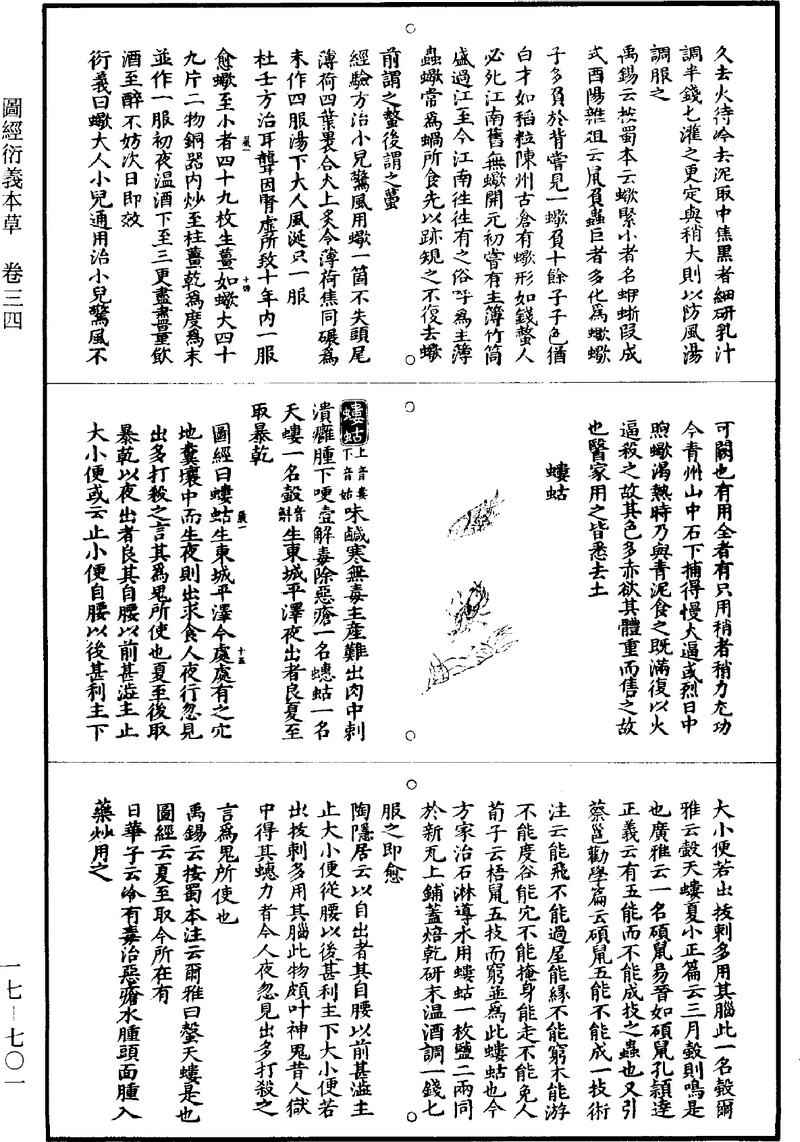 圖經衍義本草　卷三四
久去火待冷去泥取中焦黑者細研乳汁
調半錢匕灌之更定與稍大則以防風湯
調服之
禹錫云按蜀本云蠍緊小者名蚚蝂段成
式酉陽雜俎云鼠負蟲巨者多化為蠍蠍
子多負於背嘗見一蠍負十餘子子色猶
白才如稻粒陳州古倉有蠍形如錢螫人
必死江南舊無蠍開元初嘗有主簿竹筒
盛過江至今江南往往有之俗呼為主簿
蟲蠍常為蝸所食先以跡規之不復去蠍
前謂之螫後謂之蠆
經驗方治小兒驚風用蠍一箇不失頭尾
薄荷四葉裹合火上炙令薄荷焦同碾為
末作四服湯下大人風涎只一服
杜壬方治耳聾因腎虛所致十年內一服
愈蠍至小者四十九枚生薑如蠍大四十
九片二物銅器內炒至柱薑乾為度為末
並作一服初夜溫酒下至三更盡盡量飲
酒至醉不妨次日即效
衍義曰蠍大人小兒通用治小兒驚風不
可闕也有用全者有只用稍者稍力尤功
今青州山中石下捕得慢火逼或烈日中
煦蠍渴熱時乃與青泥食之既滿復以火
逼殺之故其色多赤欲其體重而售之故
也醫家用之皆悉去土
螻蛄
螻蛄上音婁下音姑味鹹寒無毒主產難出肉中刺
潰癰腫下哽壹解毒除惡瘡一名蟪蛄一名
天螻一名㲄音斛生東城平澤夜出者良夏至
取暴乾
圖經曰螻蛄生東城平澤今處處有之穴
地糞壤中而生夜則出求食人夜行忽見
出多打殺之言其為鬼所使也夏至後取
暴乾以夜出者良其自腰以前甚澁主止
大小便或云止小便自腰以後甚利主下
大小便若出拔刺多用其腦此一名㲄爾
雅云㲄天螻夏小正篇云三月㲄則鳴是
也廣雅云一名碩鼠易晉如碩鼠孔穎達
正義云有五能而不能成技之蟲也又引
蔡邕勸學篇云碩鼠五能不能成一技術
注云能飛不能過屋能緣不能窮木能游
不能度谷能穴不能掩身能走不能免人
荀子云梧鼠五技而窮並為此螻蛄也今
方家治石淋導水用螻蛄一枚鹽二兩同
於新瓦上鋪蓋焙乾研末溫酒調一錢匕
服之即愈
陶隱居云以自出者其自腰以前甚澁主
止大小便從腰以後甚利主下大小便若
出拔刺多用其腦此物頗叶神鬼昔人獄
中得其蟪力者今人夜忽見出多打殺之
言為鬼所使也
禹錫云按蜀本注云爾雅曰螜天螻是也
圖經云夏至取今所在有
日華子云冷有毒治惡瘡水腫頭面腫入
藥炒用之
一七—七〇一